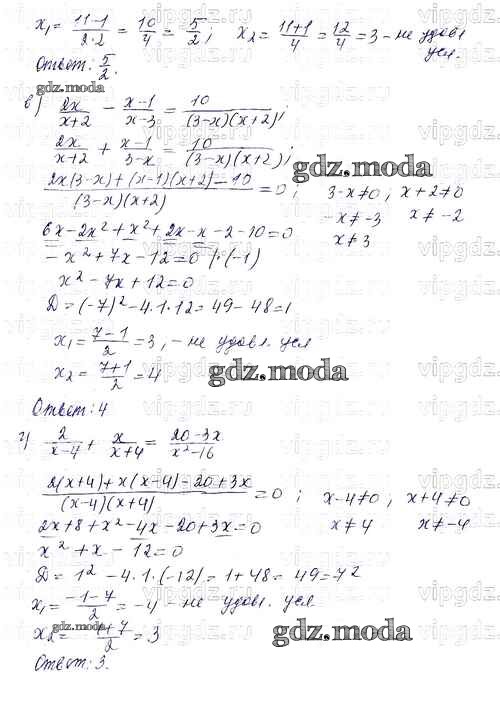 x₁ = (11-1)/(2·2) = 10/4 = 5/2; x₂ = (11+1)/4 = 12/4 = 3 - не удовл. усл.
Ответ: 5/2.
в) 2x/(x+2) - (x-1)/(x-3) = 10/((3-x)(x+2));
2x/(x+2) + (x-1)/(3-x) = 10/((3-x)(x+2));
gdz.moda
(2x(3-x) + (x-1)(x+2) - 10)/((3-x)(x+2)) = 0; 3-x≠0, x+2≠0
-x≠-3 x≠-2
x≠3
6x - 2x² + x² + 2x - x - 2 - 10 = 0
-x² + 7x - 12 = 0 |·(-1)
x² - 7x + 12 = 0
D = (-7)² - 4·1·12 = 49 - 48 = 1
x₁ = (7-1)/2 = 3, - не удовл. усл
x₂ = (7+1)/2 = 4
gdz.moda
Ответ: 4
г) 2/(x-4) + x/(x+4) = (20-3x)/(x²-16)
(2(x+4) + x(x-4) - 20 + 3x)/((x-4)(x+4)) = 0; x-4≠0, x+4≠0
x≠4 x≠-4
2x + 8 + x² - 4x - 20 + 3x = 0
x² + x - 12 = 0
D = 1² - 4·1·(-12) = 1 + 48 = 49 = 7²
x₁ = (-1-7)/2 = -4 - не удовл. усл.
x₂ = (-1+7)/2 = 3
gdz.moda
Ответ: 3.